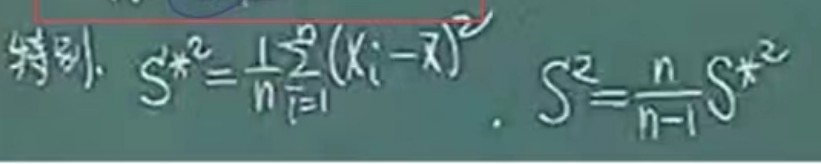 特别. S*² = 1/n ∑_{i=1}^{n} (X_i - X̄)² . S² = n/(n-1) S*²